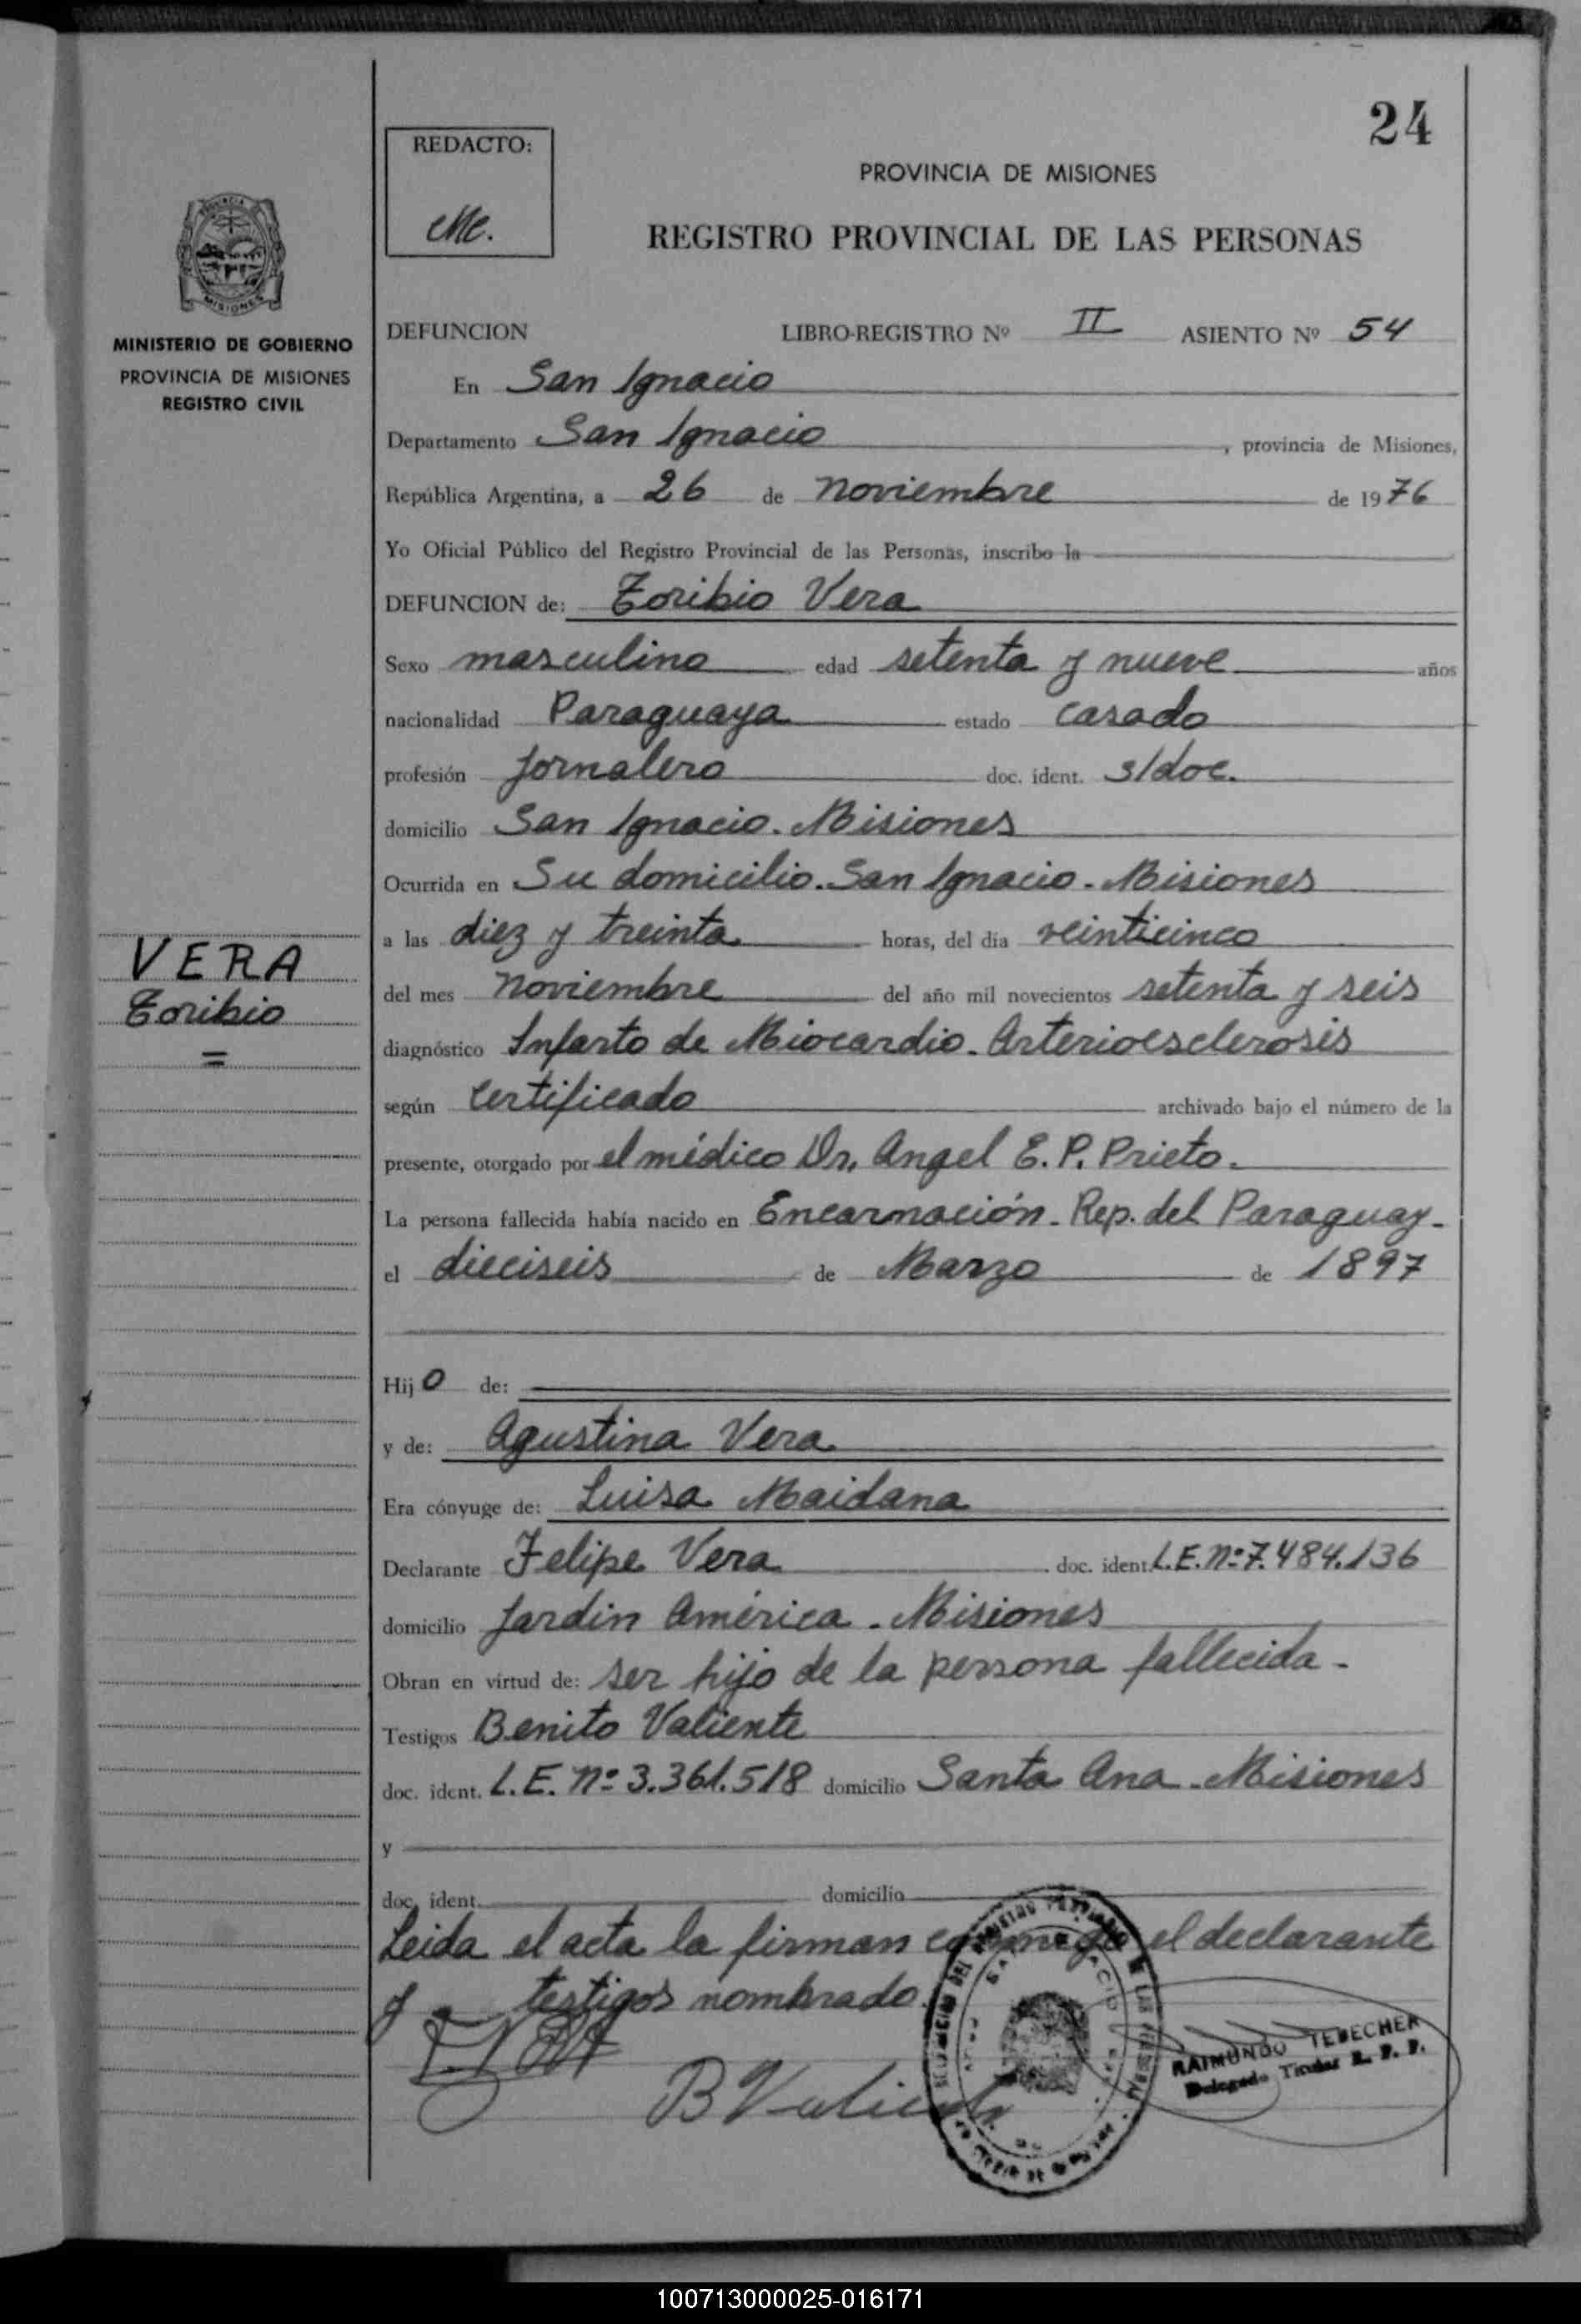 24
REDACTO:
PROVINCIA DE MISIONES
REGISTRO PROVINCIAL DE LAS PERSONAS
MISIONES
MINISTERIO DE GOBIERNO
PROVINCIA DE MISIONES
REGISTRO CIVIL
DEFUNCION LIBRO-REGISTRO Nº II ASIENTO Nº 54
En San Ignacio
Departamento San Ignacio, provincia de Misiones,
República Argentina, a 26 de noviembre de 1976
Yo Oficial Público del Registro Provincial de las Personas, inscribo la
DEFUNCION de: Toribio Vera
Sexo masculino edad setenta y nueve años
nacionalidad Paraguaya estado casado
profesión jornalero doc. ident. s/doc.
domicilio San Ignacio. Misiones
Ocurrida en Su domicilio. San Ignacio - Misiones
a las diez y treinta horas, del día veinticinco
VERA
Toribio
=
del mes noviembre del año mil novecientos setenta y seis
diagnóstico Infarto de Miocardio. Arterioesclerosis
según certificado archivado bajo el número de la
presente, otorgado por el médico Dr. Angel E. P. Prieto.
La persona fallecida había nacido en Encarnación - Rep. del Paraguay -
el dieciseis de Marzo de 1897
Hijo de:
y de: Agustina Vera
Era cónyuge de: Luisa Maidana
Declarante Felipe Vera doc. ident. L.E. Nº 7.484.136
domicilio Jardin América - Misiones
Obran en virtud de: ser hijo de la persona fallecida -
Testigos Benito Valiente
doc. ident. L.E. Nº 3.361.518 domicilio Santa Ana - Misiones
y
doc. ident. domicilio
Leida el acta la firman conmigo el declarante
y testigos nombrado.
B Valiente
RAIMUNDO TEDECHER
Delegado Titular R. P. P.
100713000025-016171